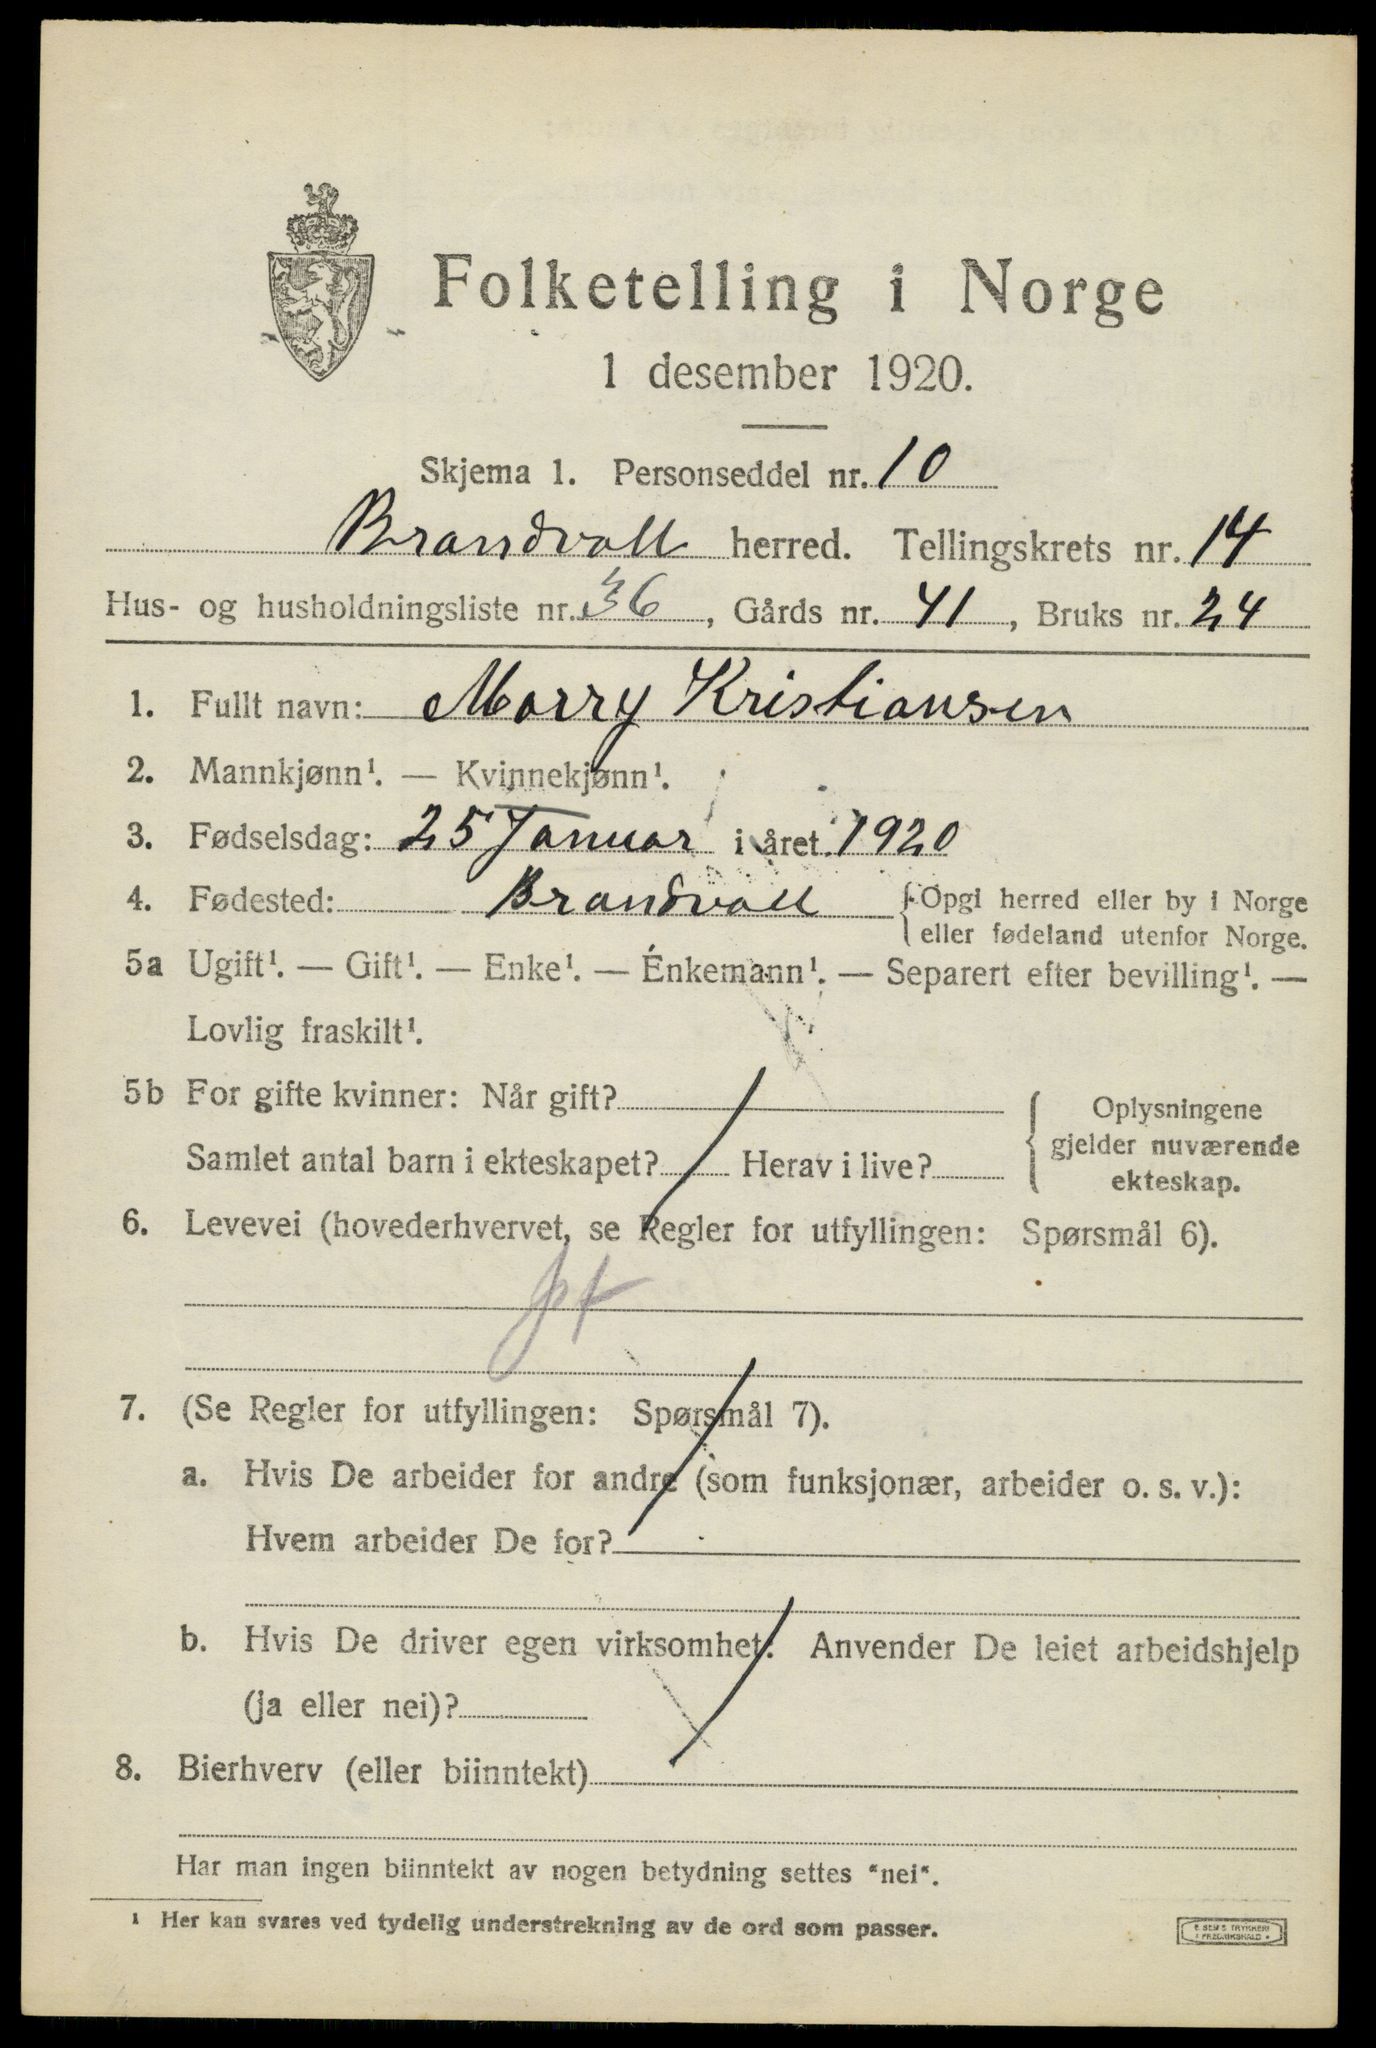 Folketelling i Norge
1 desember 1920.
Skjema 1. Personseddel nr. 10
Brandvall herred. Tellingskrets nr. 14
Hus- og husholdningsliste nr. 36, Gårds nr. 41, Bruks nr. 24
1. Fullt navn: Marry Kristiansen
2. Mannkjønn¹. — Kvinnekjønn¹.
3. Fødselsdag: 25 Januar i året 1920
4. Fødested: Brandvall {Opgi herred eller by i Norge
eller fødeland utenfor Norge.
5a Ugift¹. — Gift¹. — Enke¹. — Énkemann¹. — Separert efter bevilling¹. —
Lovlig fraskilt¹.
5b For gifte kvinner: Når gift?
Samlet antal barn i ekteskapet? Herav i live?
{ Oplysningene
gjelder nuværende
ekteskap.
6. Levevei (hovederhvervet, se Regler for utfyllingen: Spørsmål 6).
7. (Se Regler for utfyllingen: Spørsmål 7).
a. Hvis De arbeider for andre (som funksjonær, arbeider o. s. v.):
Hvem arbeider De for?
b. Hvis De driver egen virksomhet: Anvender De leiet arbeidshjelp
(ja eller nei)?
8. Bierhverv (eller biinntekt)
Har man ingen biinntekt av nogen betydning settes "nei".
¹ Her kan svares ved tydelig understrekning av de ord som passer.
E. SEM'S TRYKKERI
FREDRIKSHALD